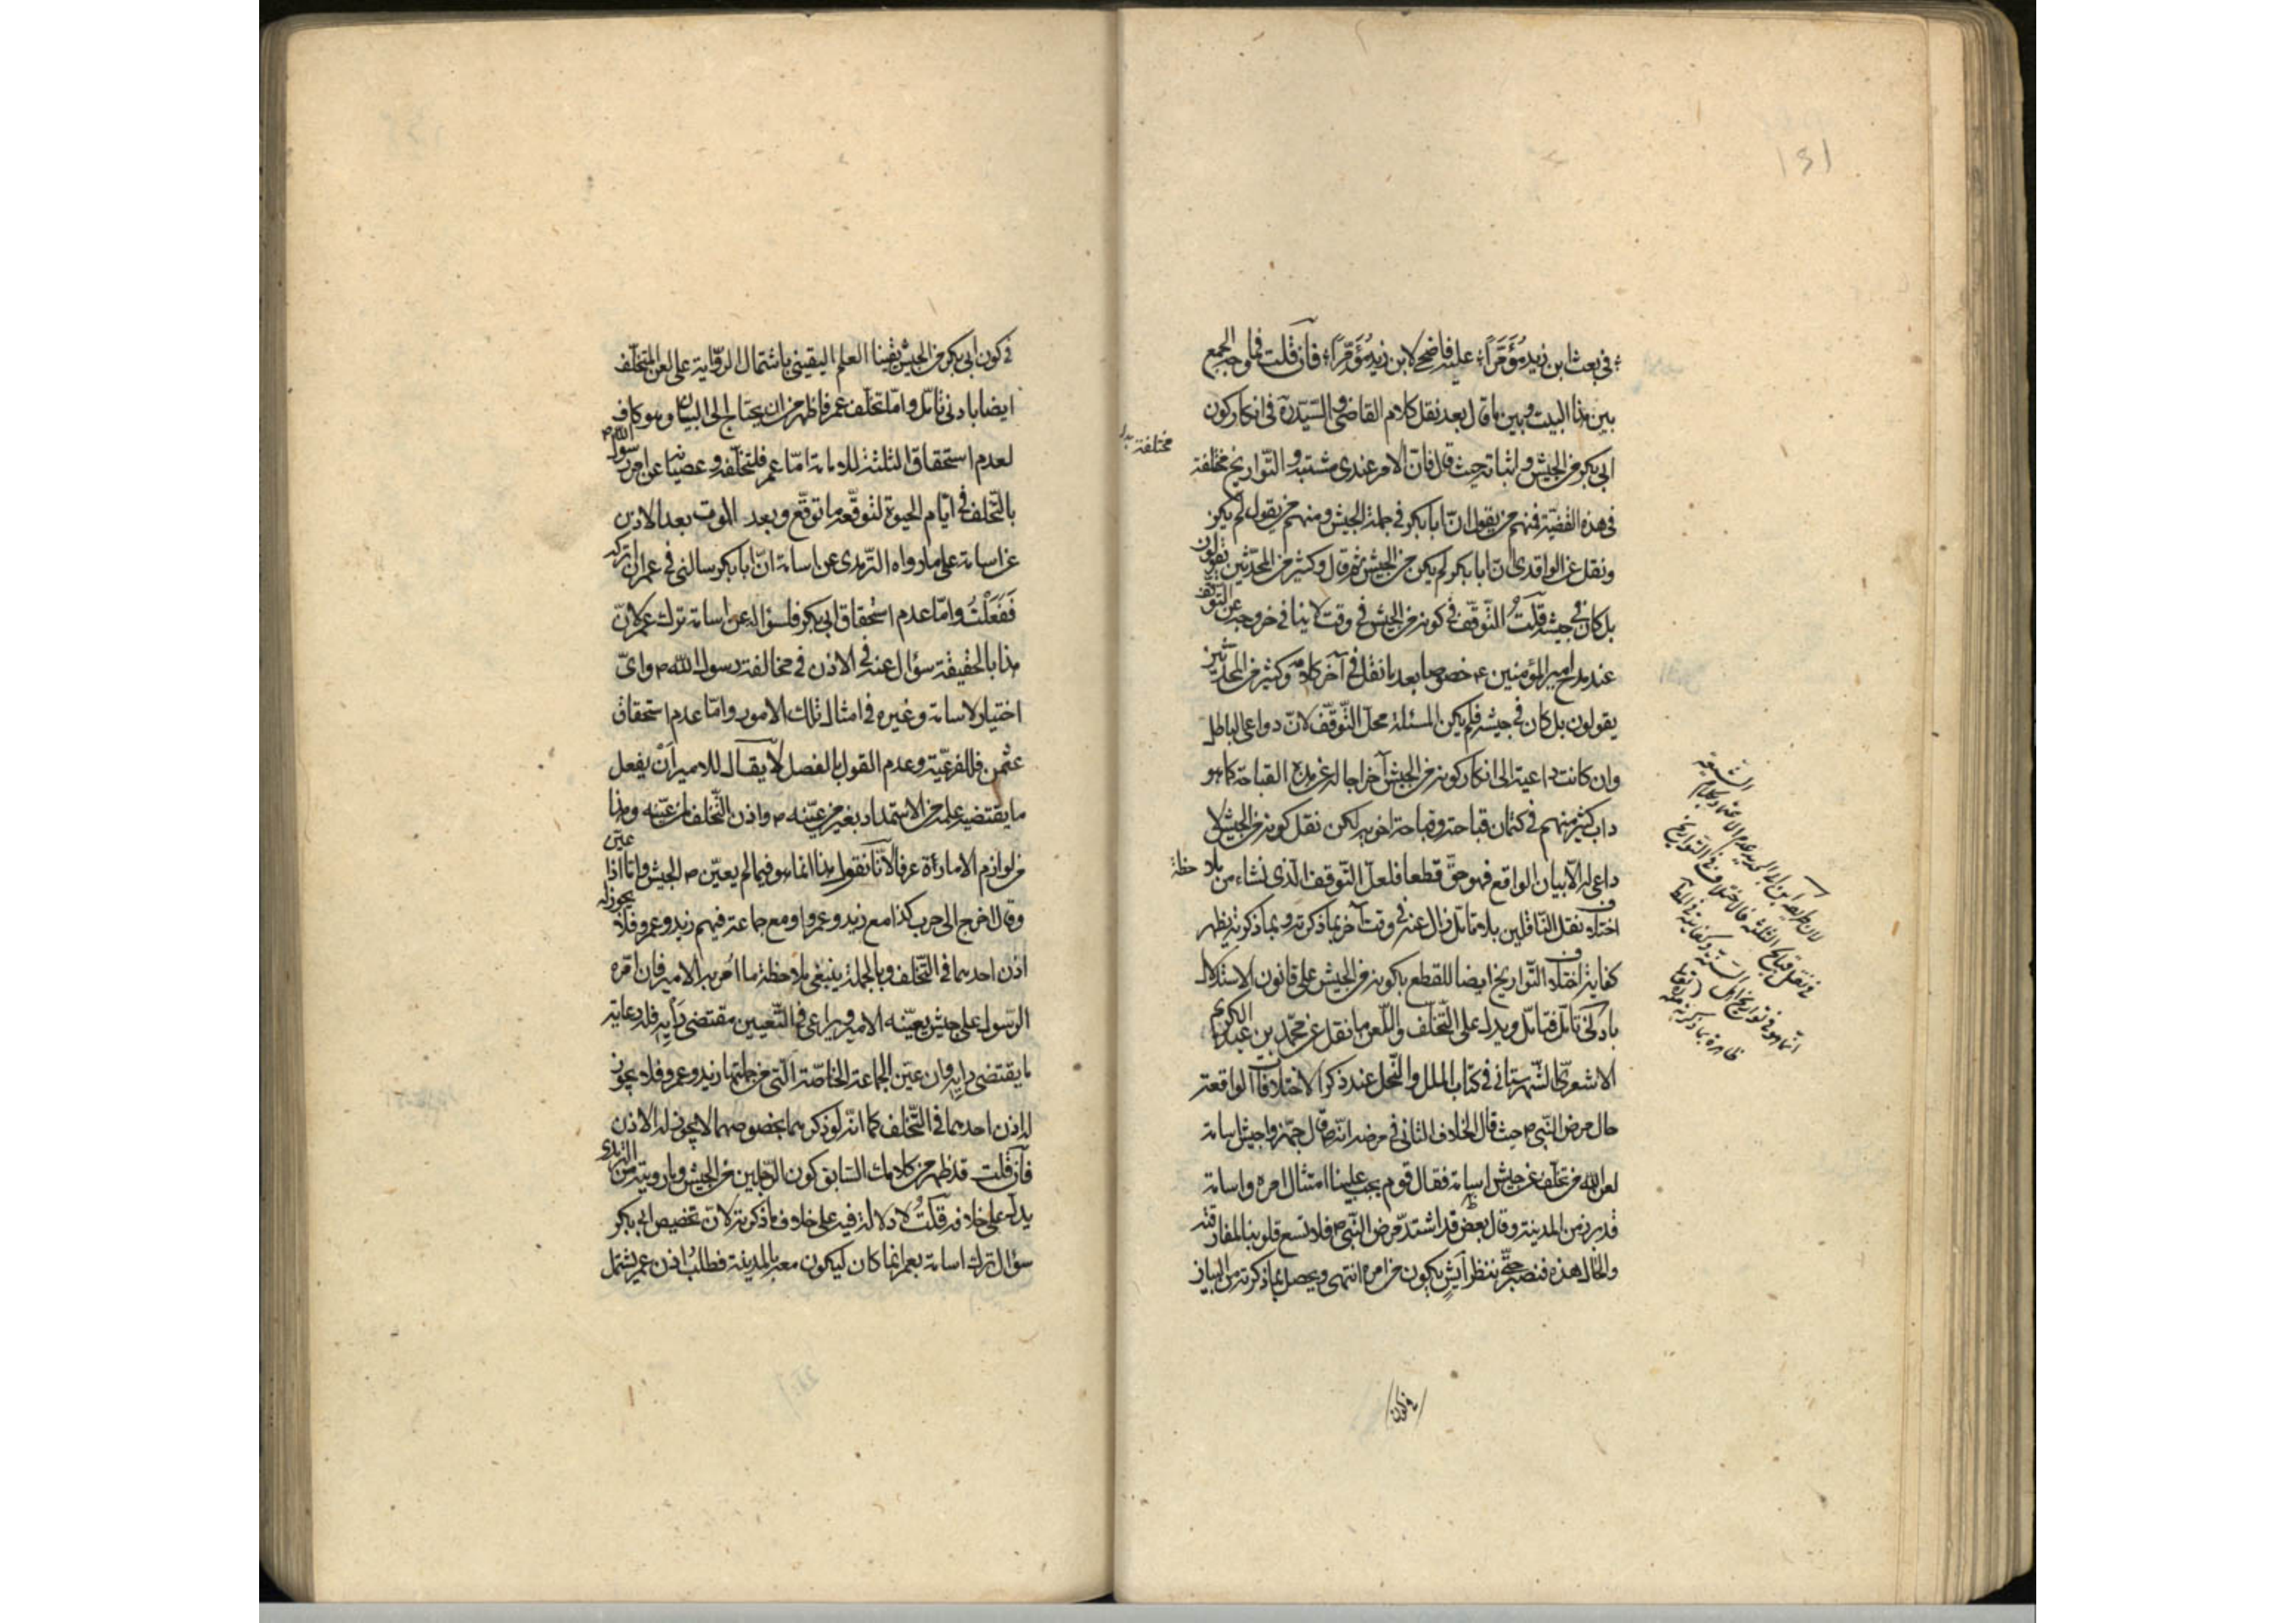 ١٤١
في بعث ابن زيد مؤمّرا ؛ عليه فاضحى لابن زيد مؤمّرا ؛ فان قلت فما وجه الجمع
بين هذا البيت وبين ما قال بعد نقل كلام القاضى والسيّد ره في انكار كون
ابى بكر من الجيش واثباته حيث قال فانّ الامر عندى مشتبه والتواريخ مختلفة
في هذه القضيّة فمنهم من يقول انّ ابا بكر في جملة الجيش ومنهم من يقول لم يكن
ونقل عن الواقدى انّ ابا بكر لم يكن من الجيش ثم قال وكثير من المحدّثين يقولون
بل كان في جيشه قلتُ التوقّف في كونه من الجيش في وقت لا ينافي خروجه عن التوقف
عند مدح امير المؤمنين ء خصوصا بعد ما نقل في آخر كلامه وكثير من المحدّثين
يقولون بل كان في جيشه فلم يكن المسئلة محلّ التّوقّف لانّ دواعى الباطل
وان كانت داعية الى انكار كونه من الجيش آخرا جاله عن هذه القباحة كما هو
داب كثير منهم في كتمان قباحته وقباحة اخويه لكن نقل كونه من الجيش لا
داعى له الّا بيان الواقع فهو حقّ قطعا فلعلّ التّوقّف الّذى نشاء من بلا حظة
اختلاف نقل النّاقلين بلا تأمّل زال عنه في وقت آخر بما ذكرته وبما ذكرته يظهر
كفاية اختلاف التّواريخ ايضا للقطع بكونه من الجيش على قانون الاستدلال
بادنى تأمّل فتأمّل ويدل على التّخلّف واللّعن ما نقل عن محمّد بن عبد الكريم
الاشعرىّ الشّهرستانى في كتاب الملل والنّحل عند ذكر الاختلافات الواقعة
حال مرض النّبى ص حيث قال الخلاف الثانى في مرضه انّه ص قال جهّزوا جيش اسامة
لعن الله من تخلّف عن جيش اسامة فقال قوم يجب علينا امتثال امره واسامة
قد برز من المدينة وقال بعض قد اشتدّ مرض النّبى ص فلا تسع قلوبنا المفارقته
والحال هذه فنصبر حتّى ننظر أيش يكون من امره انتهى ويحصل بما ذكرته من البيان
مختلفة بدل
في نقل قبايح الثلثة فالاختلاف في التواريخ
في كون
في كون ابى بكر من الجيش يقينا العلم اليقينى باشتمال الروّاية على لعن المتخلّف
ايضا بادنى تأمّل وامّا تخلّف عمر فاظهر من ان يحتاج الى البيان وهو كاف
لعدم استحقاق الثلثة للامامة امّا عمر فلتخلّفه وعصيانه عن امر رسول الله ص
بالتّخلف في ايّام الحيوة لتوقّعه ما توقّع وبعد الموت بعد الاذن
عن اسامة على ما رواه التّرمذى عن اسامة انّ ابا بكر سالنى في عمر ان اتركه
فَفَعَلْتُ وامّا عدم استحقاق ابى بكر فلسؤاله عن اسامة ترك عمر لانّ
هذا بالحقيقة سؤال عنه في الاذن في مخالفة رسول الله ص وايّ
اختيار لاسامة وغيره في امثال تلك الامور وامّا عدم استحقاق
عثمن فللفرعيّة وعدم القول بالفصل لا يقال للامير أنْ يفعل
ما يقتضيه علمه من الاستمداد بغير من عيّنه ص واذن التّخلف لمن عيّنه وهذا
من لوازم الامارة عرفا لانّا نقول هذا انما هو فيما لم يعيّن ص الجيش وامّا اذا عيّن
وقال اخرج الى حرب كذا مع زيد وعمرو او مع جماعة فيهم زيد وعمرو فلا يجوز له
اذن احدهما في التّخلف وبالجملة ينبغى ملاحظة ما امر به الامير فان امّره
الرّسول على جيش يعيّنه الامير ويراعى في التّعيين مقتضى رأيه فله رعاية
ما يقتضى رايه وان عيّن الجماعة الخاصّة الّتى من جملتها زيد وعمرو فلا يجوز
له اذن احدهما في التّخلف كما انّه لو ذكر هما بخصوصهما لا يجوز له الاذن
فان قلت قد ظهر من كلامك السّابق كون الرّجلين من الجيش وما رويته من الترمذى
يدلّ على خلافه قلتُ لا دلالة فيه على خلاف ما ذكرته لانّ تخصيص ابى بكر
سؤال ترك اسامة بعمر انما كان ليكون معه بالمدينة فطلبُ اذن عمر يشتمل